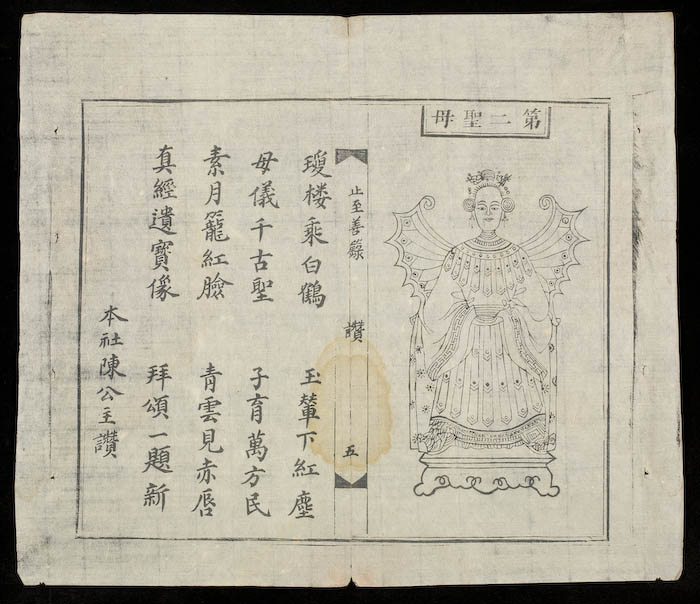 第二聖母
止至善籙 讚 五
瓊楼乘白鶴 玉輦下紅塵
母儀千古聖 子育萬方民
素月籠紅臉 青雲見赤唇
真經遺寳像 拜頌一題新
本社陳公主讚